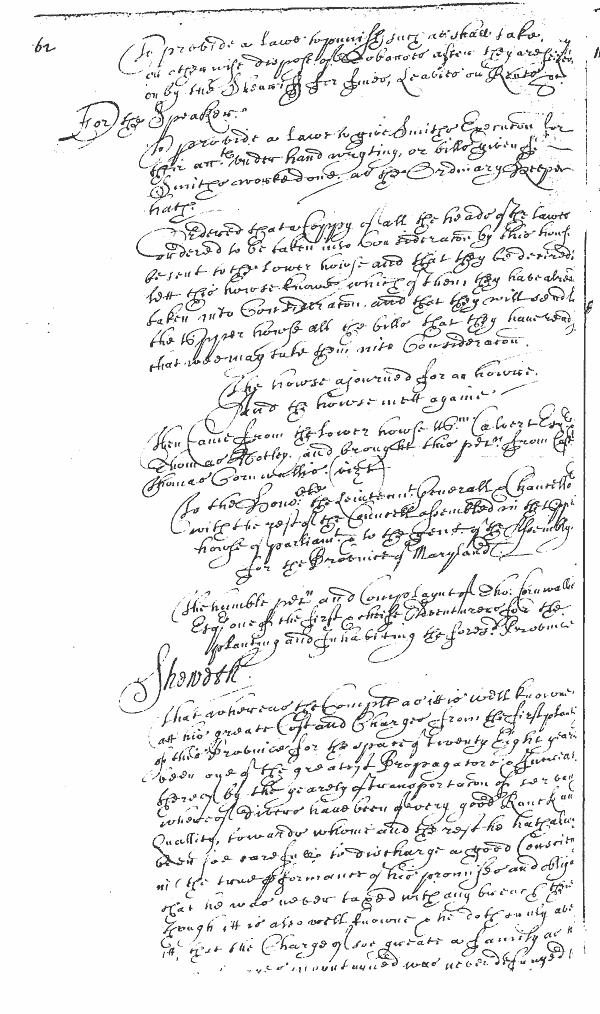 62
To provide a Lawe to punish such as shall take,
or otherwise dispose of Tobaccoes after they are seized
on by the Sherriff for fines, Leavies or Rents
For the Speaker.
To provide a Lawe to give Smiths Execucon for
their acc.ts under hand wryting, or bills given for
Smiths worke done, as the Ordinary Keeper
hath.
Ordered that a Coppy of all the heads of the lawes
ordered to be taken into Consideracon by this house
be sent to the lower howse and that they be desired
lett this howse knowe which of them they have alrea
taken into Consideracon, and that they will send to
the Upper howse all the bills that they have read
that wee may take them into Consideracon.
The howse ajourned for an howre.
And the howse mett againe
Then Came from the lower howse Wm Calvert Esq
Thomas Notley, and brought this petn from Capt
Thomas Cornwallis. (vizt)
To the Honoble the Leiutent Generall & Chancello
with the rest of the Councell assembled in the Upp
howse of parliamt & to the gent of the Assembly
for the Province of Maryland
The humble petn and Complaynt of Tho: Cornwalle
Esq one of the first & cheife Adventurers for the
planting and Inhabiting the foresd Province
Sheweth
That whereas the Complt as it is well knowne
att his greate Cost and Charges from the first plant
of this Province for the space of twenty Eight years
been one of the greatest Propagators & Increas
thereof by the yearely transportacon of servan
whereof divers have been of very good Ranck an
Quallity, towards whome and the rest he hath alw
been soe carefull to discharge a good Conscien
in the true performance of his promises and obliga
that he was never taxed with any breach thereof
though itt is also well knowne & he doth truly ave
itt, that the Charge of soe greate a family as he
mayntayned was never defrayed